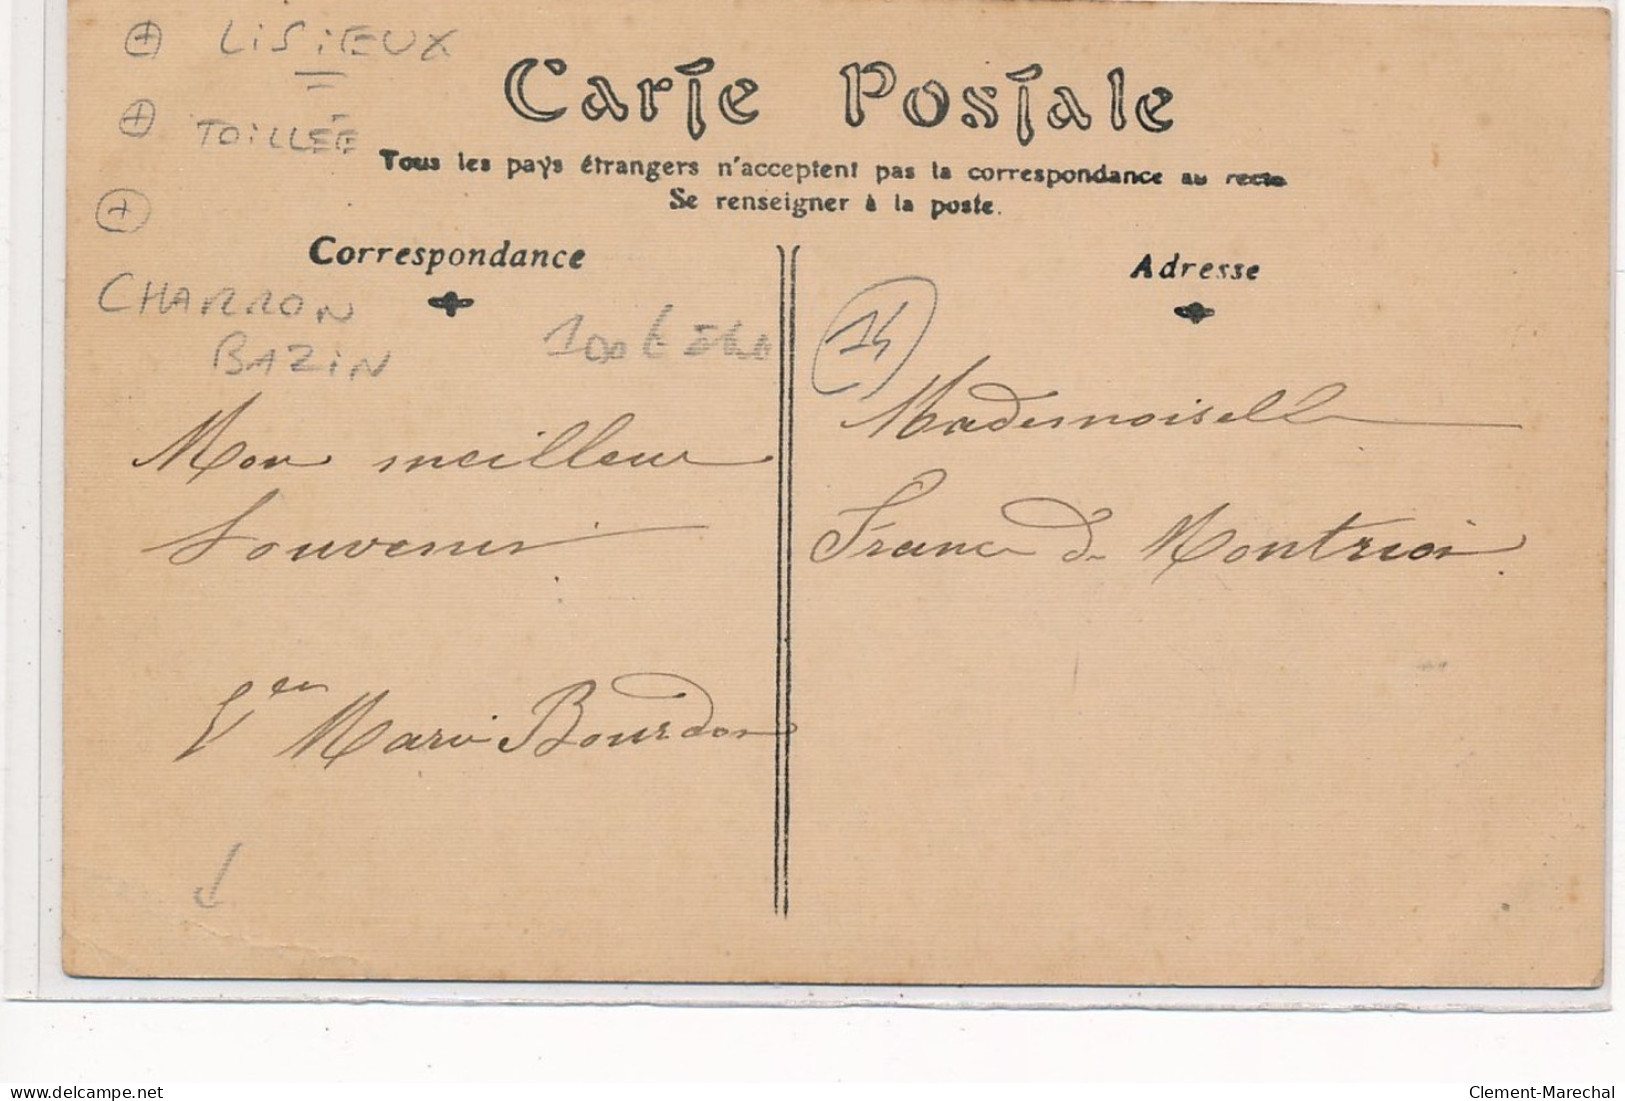 LISIEUX
TOILLÉE
Carte Postale
Tous les pays étrangers n'acceptent pas la correspondance au recto
Se renseigner à la poste.
Correspondance
Adresse
CHARRON
BAZIN
100€
14
Mademoiselle
Mon meilleur
Souvenir
France de
Marie Bourdon
delcampe.net
Clement-Marechal